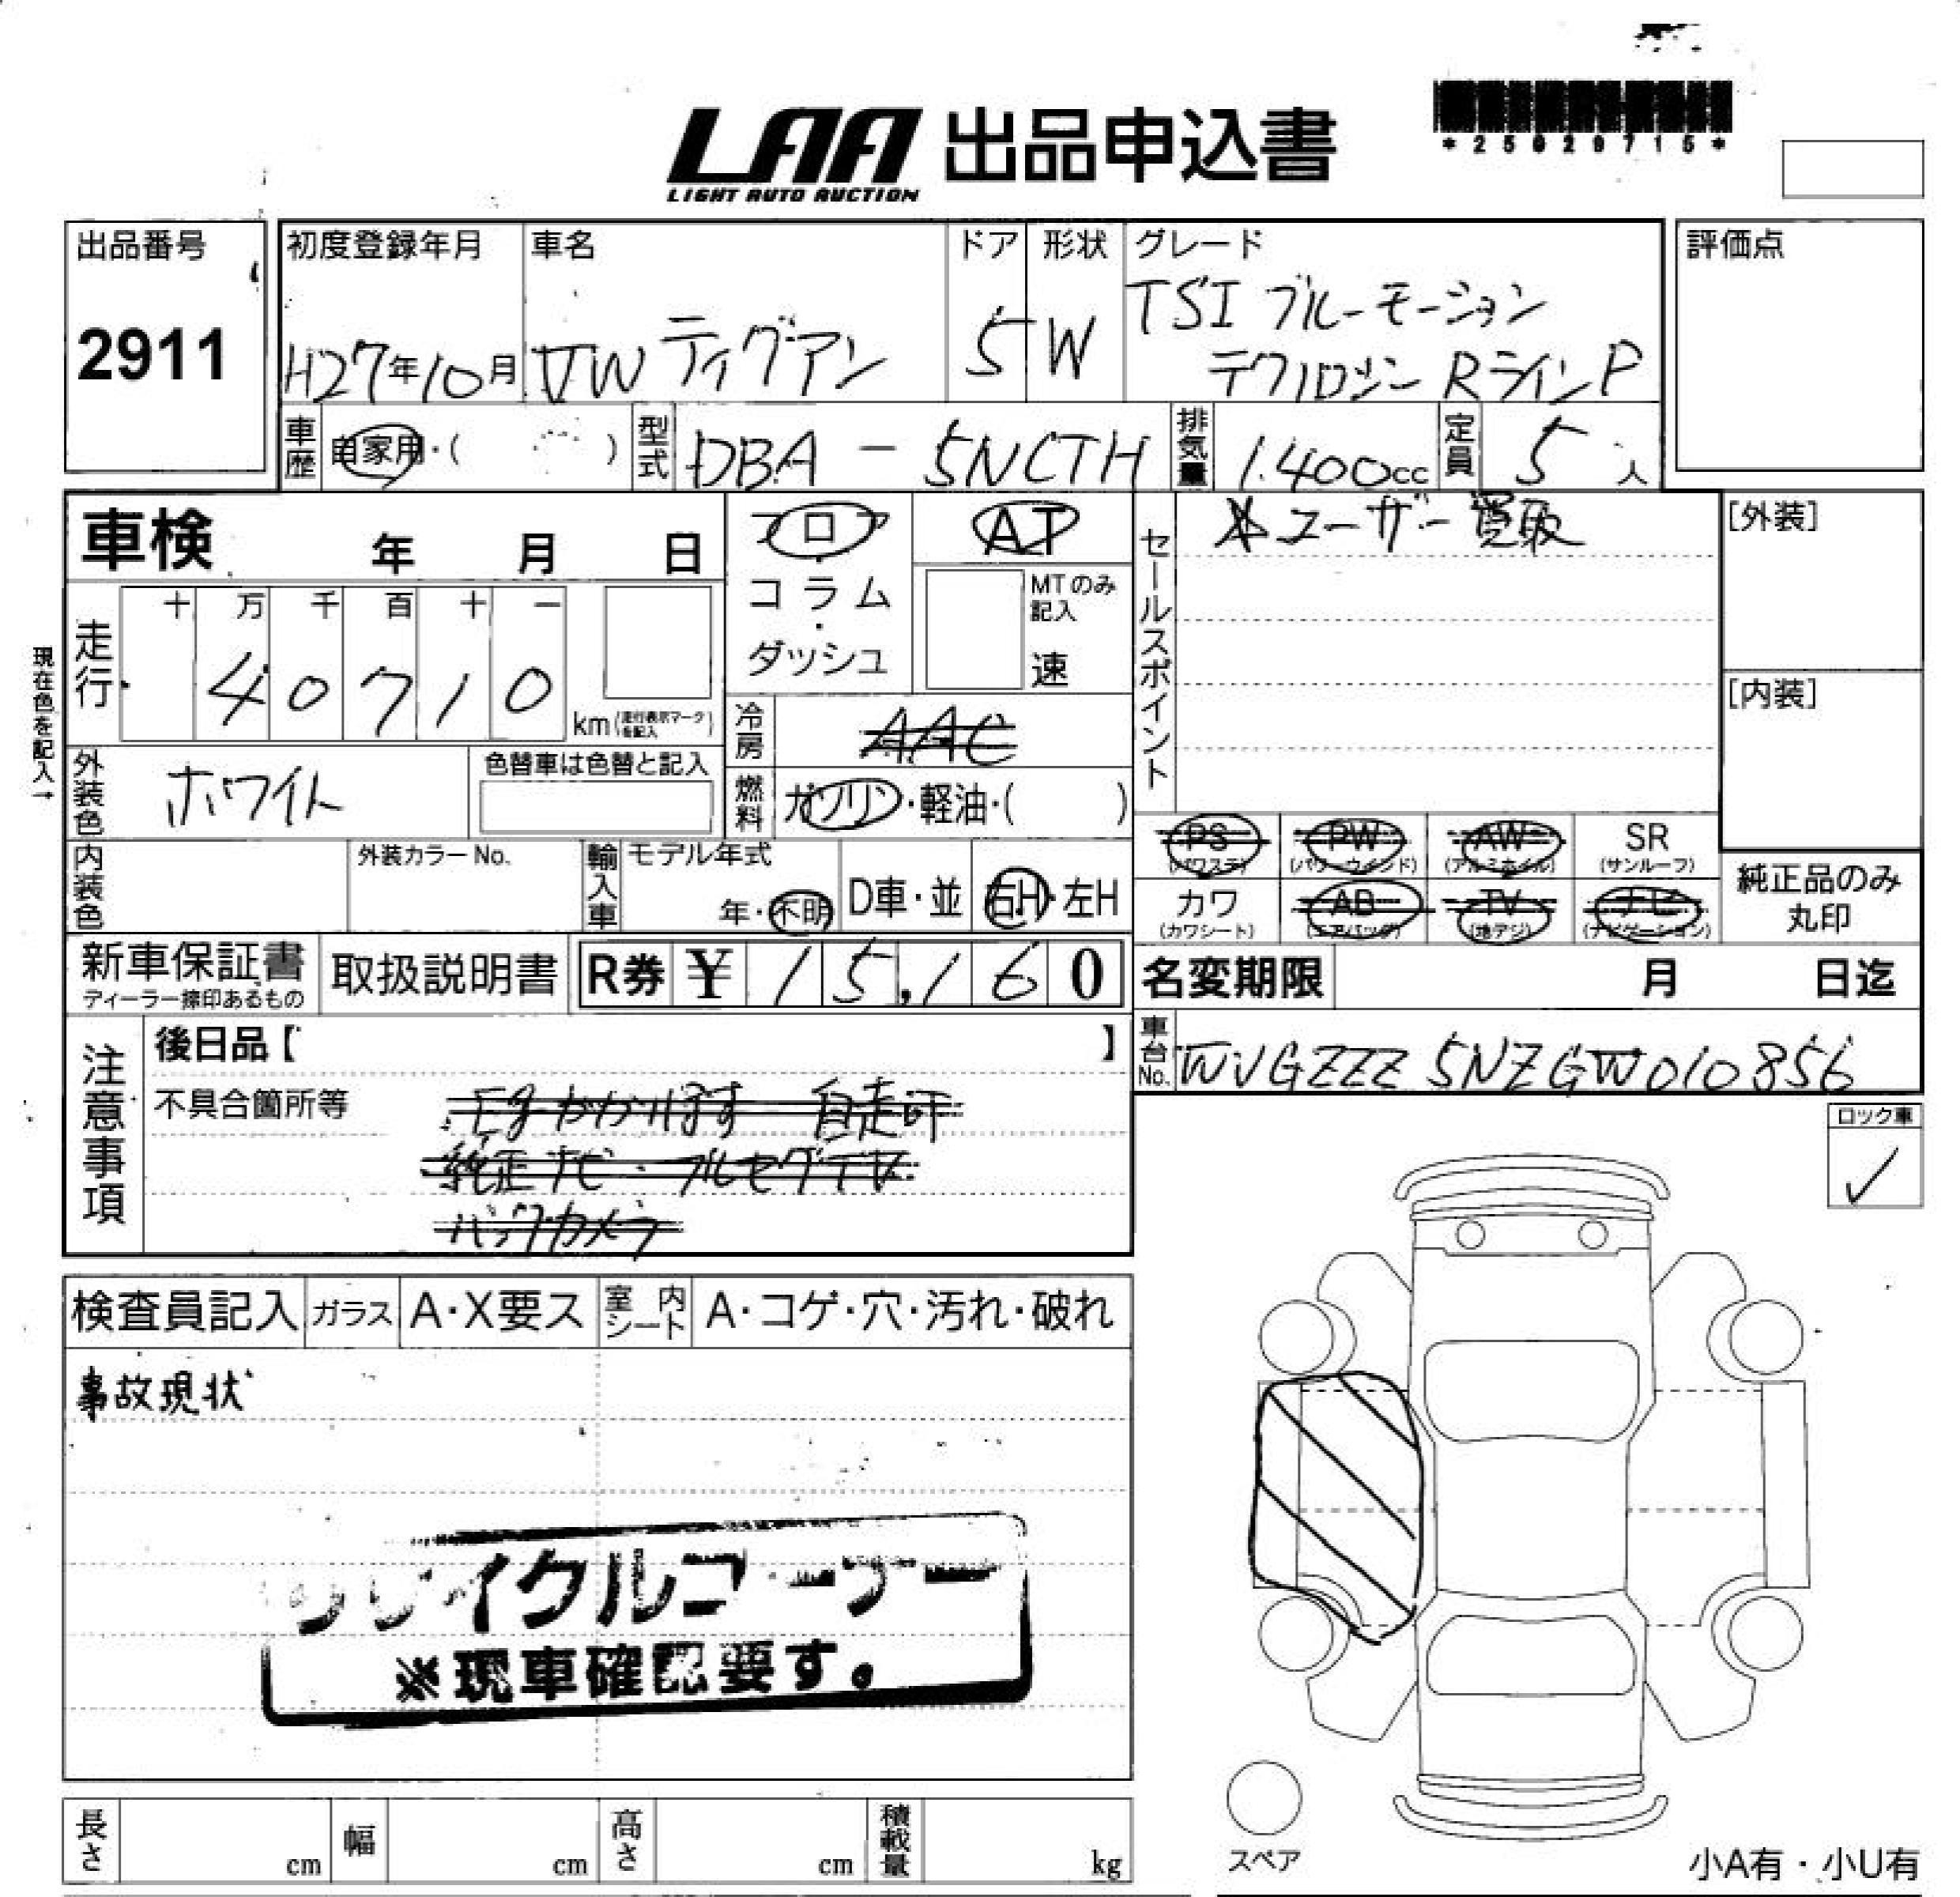 LAA 出品申込書
LIGHT AUTO AUCTION
*25029715*
出品番号
2911
初度登録年月
H27年10月
車名
VW ティグアン
ドア
5
形状
W
グレード
TSI ブルーモーション
テクノロジー RラインP
評価点
車歴 自家用・( )
型式 DBA - 5NCTH
排気量 1.400cc
定員 5人
車検 年 月 日
フロア
・
コラム
・
ダッシュ
AT
MTのみ
記入
速
セールスポイント
ユーザー買取
[外装]
[内装]
現在色を記入→
走行
十 万 千 百 十 一
4 0 7 1 0
km(走行表示マークを記入)
冷房 AAC
外装色 ホワイト
色替車は色替と記入
燃料 ガソリン・軽油・( )
内装色
外装カラーNo.
輸入車
モデル年式
年・不明
D車・並
右H・左H
PS
(パワステ)
PW
(パワーウインド)
AW
(アルミホイル)
SR
(サンルーフ)
カワ
(カワシート)
AB
(エアバッグ)
TV
(地デジ)
ナビ
(ナビゲーション)
純正品のみ
丸印
新車保証書
ディーラー捺印あるもの
取扱説明書
R券 ¥ 15,160
名変期限 月 日迄
車台No. WVGZZZ5NZGW010856
注意事項
後日品【 】
不具合箇所等
Egかかります 自走可
純正ナビ・フルセグTV
バックカメラ
ロック車
✓
検査員記入
ガラス A・X要ス
室内シート A・コゲ・穴・汚れ・破れ
事故現状
リサイクルコーナー
※現車確認要す。
長さ cm
幅 cm
高さ cm
積載量 kg
スペア
小A有・小U有